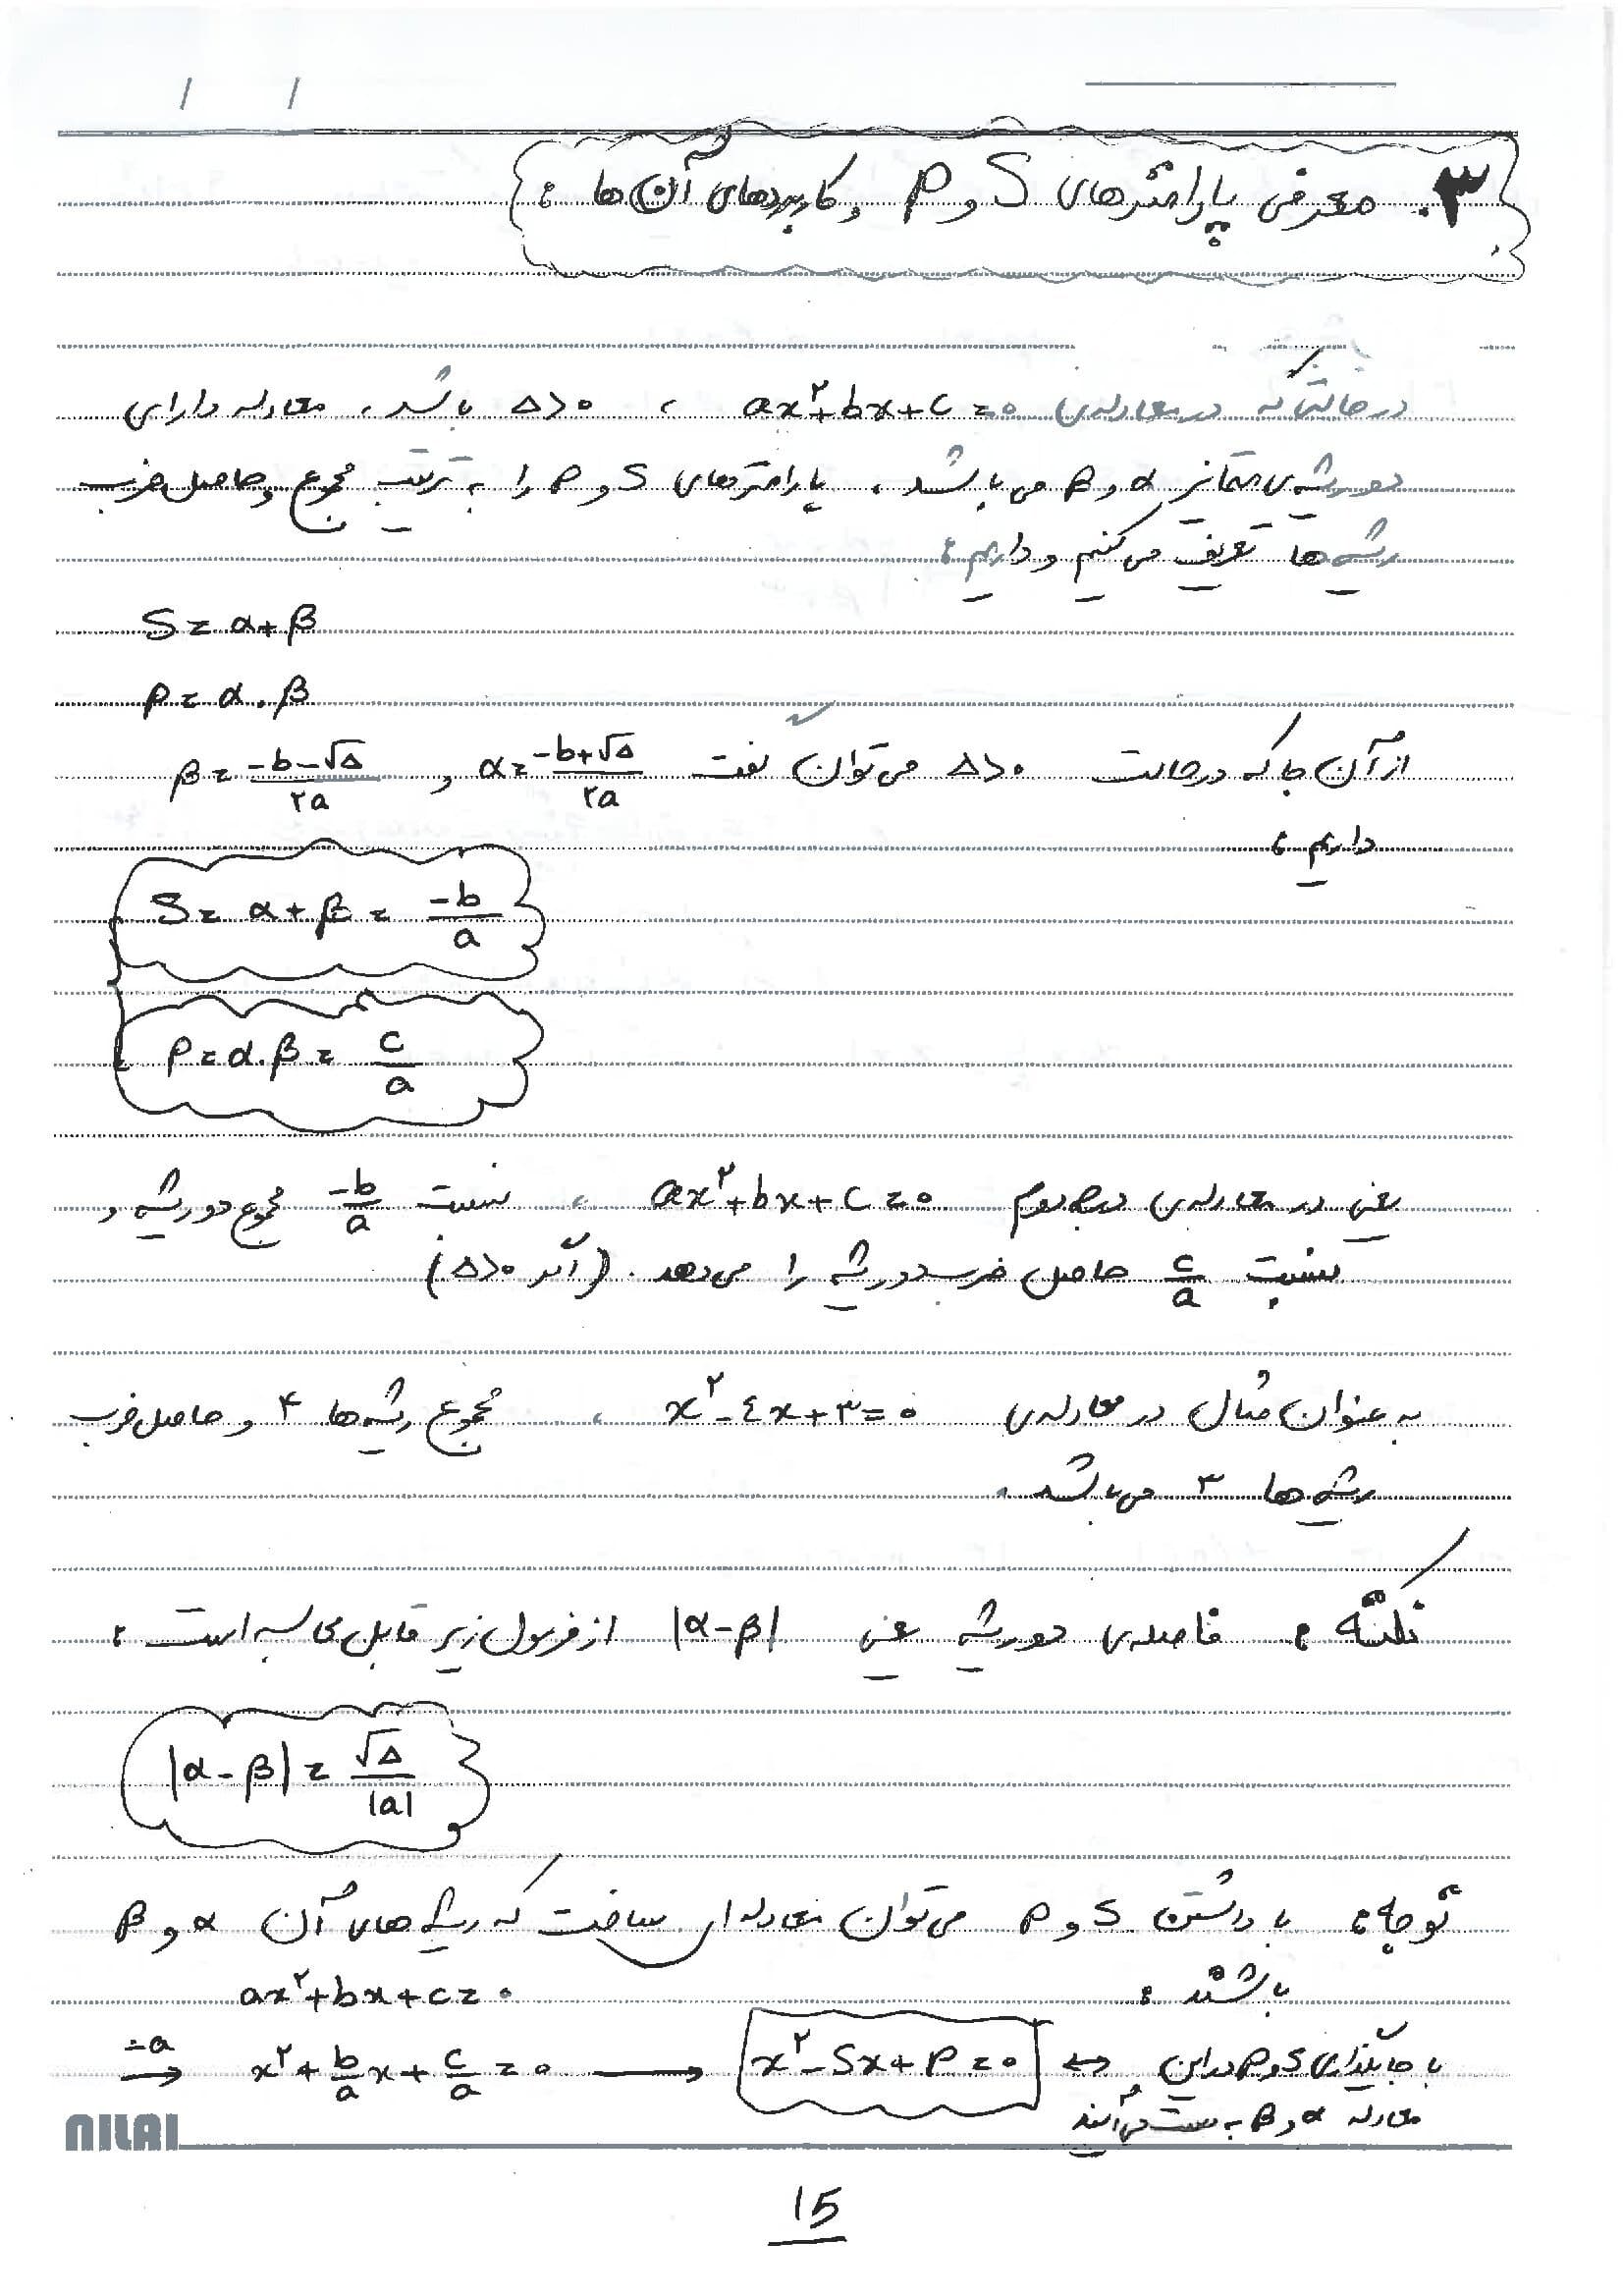 ۳. معرفی پارامترهای S و P و کاربردهای آن ها :
در حالتی که در معادله‌ی ax²+bx+c=۰ ، Δ>۰ باشد، معادله دارای
دو ریشه‌ی متمایز α و β می باشد، پارامترهای S و P را به ترتیب مجموع و حاصل ضرب
ریشه‌ها تعریف می‌کنیم و داریم :
S = α+β
P = α.β
از آن جا که در حالت Δ>۰ می‌توان گفت α=(-b+√Δ)/۲a و β=(-b-√Δ)/۲a
داریم :
S = α+β = -b/a
P = α.β = c/a
یعنی در معادله‌ی درجه دوم ax²+bx+c=۰ ، نسبت -b/a مجموع دو ریشه و
نسبت c/a حاصل ضرب دو ریشه را می‌دهد. (اگر Δ>۰)
به عنوان مثال در معادله‌ی x²-٤x+۳=۰ ، مجموع ریشه‌ها ۴ و حاصل ضرب
ریشه‌ها ۳ می‌باشد.
نکته : فاصله‌ی دو ریشه یعنی |α-β| از فرمول زیر قابل محاسبه است :
|α-β| = √Δ/|a|
توجه : با داشتن S و P می‌توان معادله‌ای ساخت که ریشه‌های آن α و β
باشند :
ax²+bx+c=۰
÷a → x²+b/a x+c/a=۰ → x²-Sx+P=۰ ↔ با جایگذاری S و P در این
معادله α و β به دست می‌آیند
NILAI
15